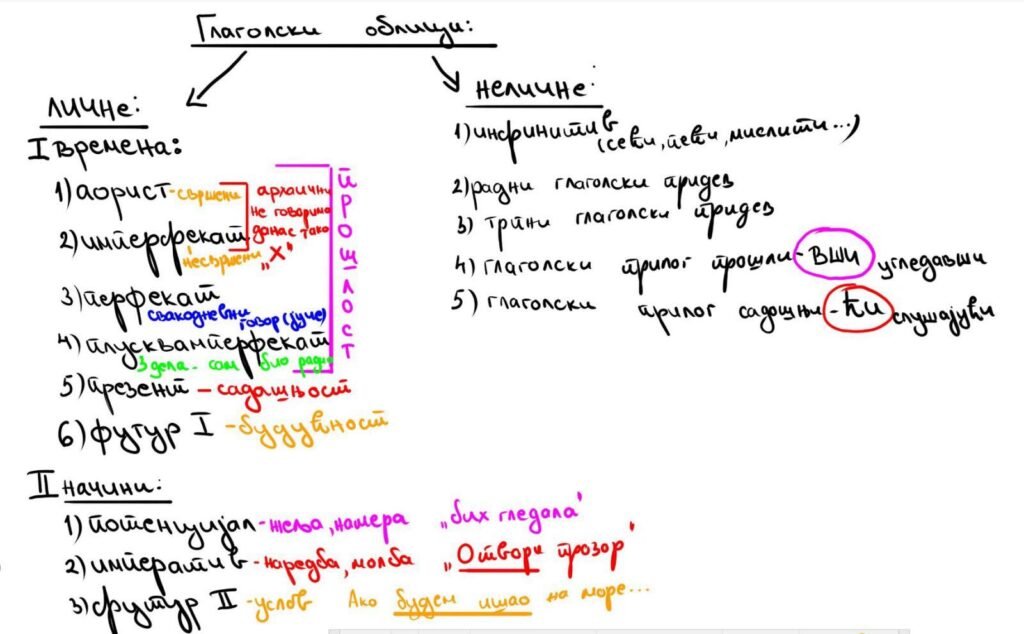 Глаголски облици:
личне:
I времена:
1) аорист - свршени
архаични
не говоримо
данас тако
2) имперфекат
несвршени „X”
3) перфекат
свакодневни
говор (јуче)
4) плусквамперфекат
3 дела - сам био радио
прошлост
5) презент - садашњост
6) футур I - будућност
II начини:
1) потенцијал - жеља, намера „бих гледала”
2) императив - наредба, молба „Отвори прозор”
3) футур II - услов Ако будем ишао на море...
неличне:
1) инфинитив
(сећи, пећи, мислити...)
2) радни глаголски придев
3) трпни глаголски придев
4) глаголски прилог прошли - ВШИ угледавши
5) глаголски прилог садошњи - ћи слушајући